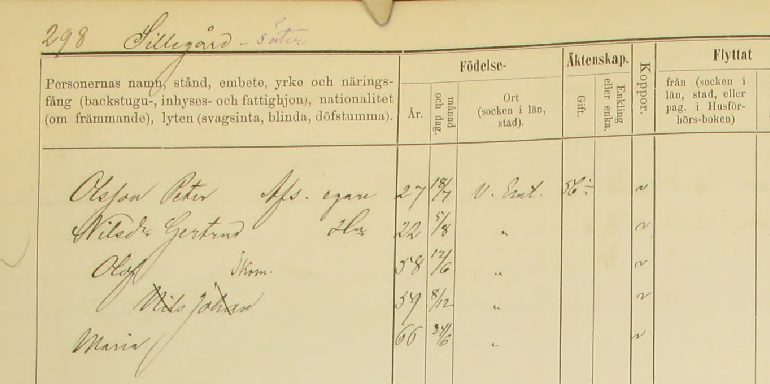 298 Sillegård - säter
Födelse- Äktenskap. Koppor. Flyttat
Personernas namn, stånd, embete, yrke och närings-
fång (backstugu-, inhyses- och fattighjon), nationalitet
(om främmande), lyten (svagsinta, blinda, döfstumma).
År.
månad
och dag.
Ort
(socken i län,
stad).
Gift.
Enkling
eller enka.
från (socken i
län, stad, eller
pag. i Husför-
hörs-boken)
Olsson Peter Afs. egare 27 18/7 V. Emt. v
Nilsdr Gertrud Hu 22 5/8 " v
Olof 58 12/6 " v
Nils Johan 59 8/12 " v
Maria 66 24/6 " v